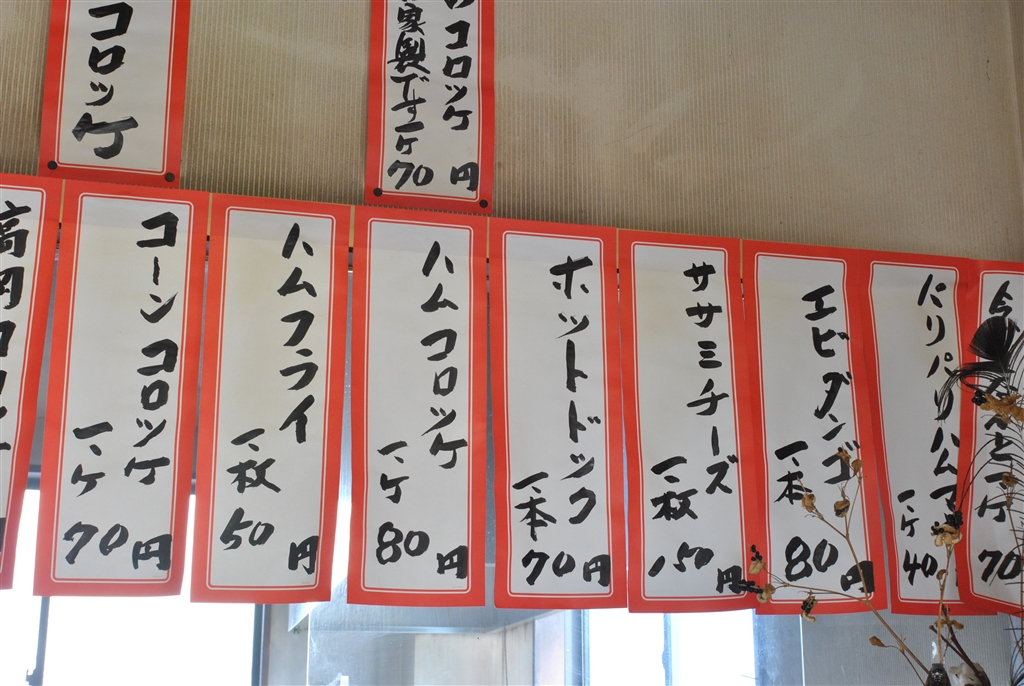 コロッケ
コロッケ
家製です一ケ
70円
コーンコロッケ
一ケ
70円
ハムフライ
一枚
50円
ハムコロッケ
一ケ
80円
ホットドック
一本
70円
ササミチーズ
一枚
150円
エビダンゴ
一本
80円
パリハム
一ケ
40
高岡コロ
一ケ
70